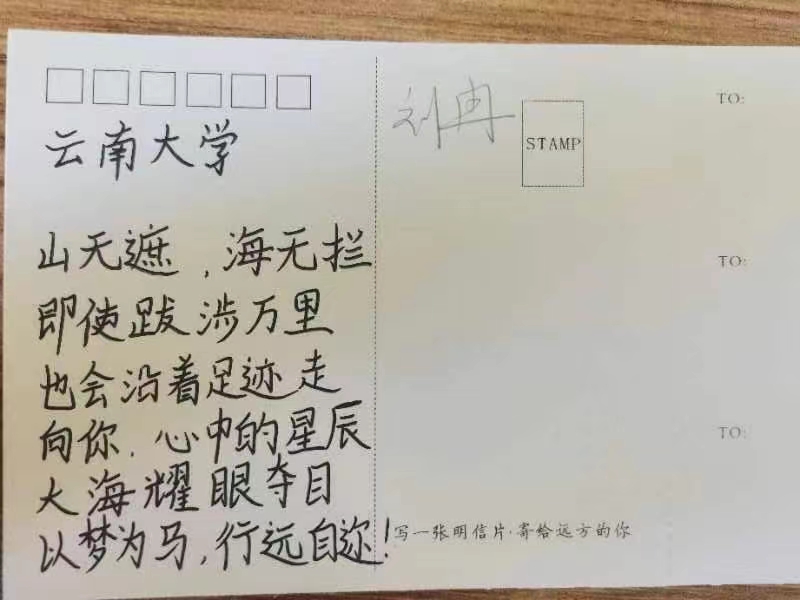 云南大学
山天遮，海无拦
即使跋涉万里
也会沿着足迹走
向你.心中的星辰
大海耀眼夺目
以梦为马,行远自迩!
刘冉
STAMP
TO:
TO:
TO:
写一张明信片·寄给远方的你